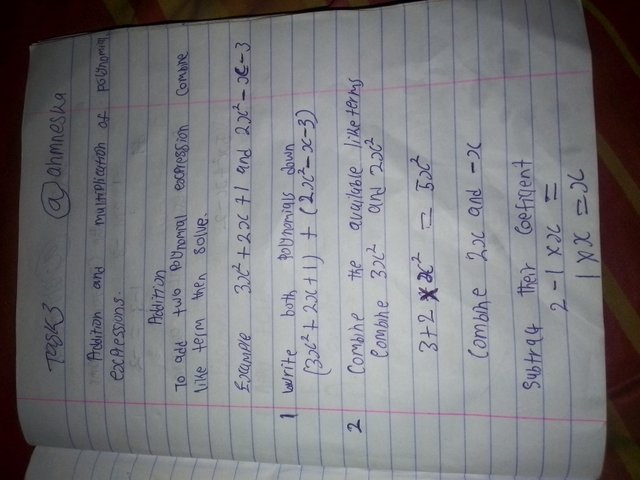 Task 3 @ ahmnesha
Addition and multiplication of polynomial
expressions.
Addition
To add two polynomial expression combine
like term then solve.
Example 3x² + 2x + 1 and 2x² - x - 3
1 Write both polynomials down
(3x² + 2x + 1) + (2x² - x - 3)
2 Combine the available like terms
Combine 3x² and 2x²
3 + 2 × x² = 5x²
Combine 2x and -x
Subtract their coefficient
2 - 1 × x =
1 × x = x